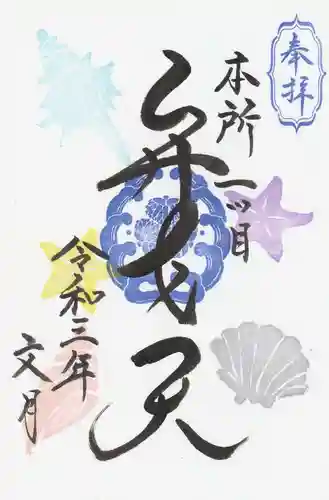 奉拝
本所一ツ目
弁天
令和三年
文月